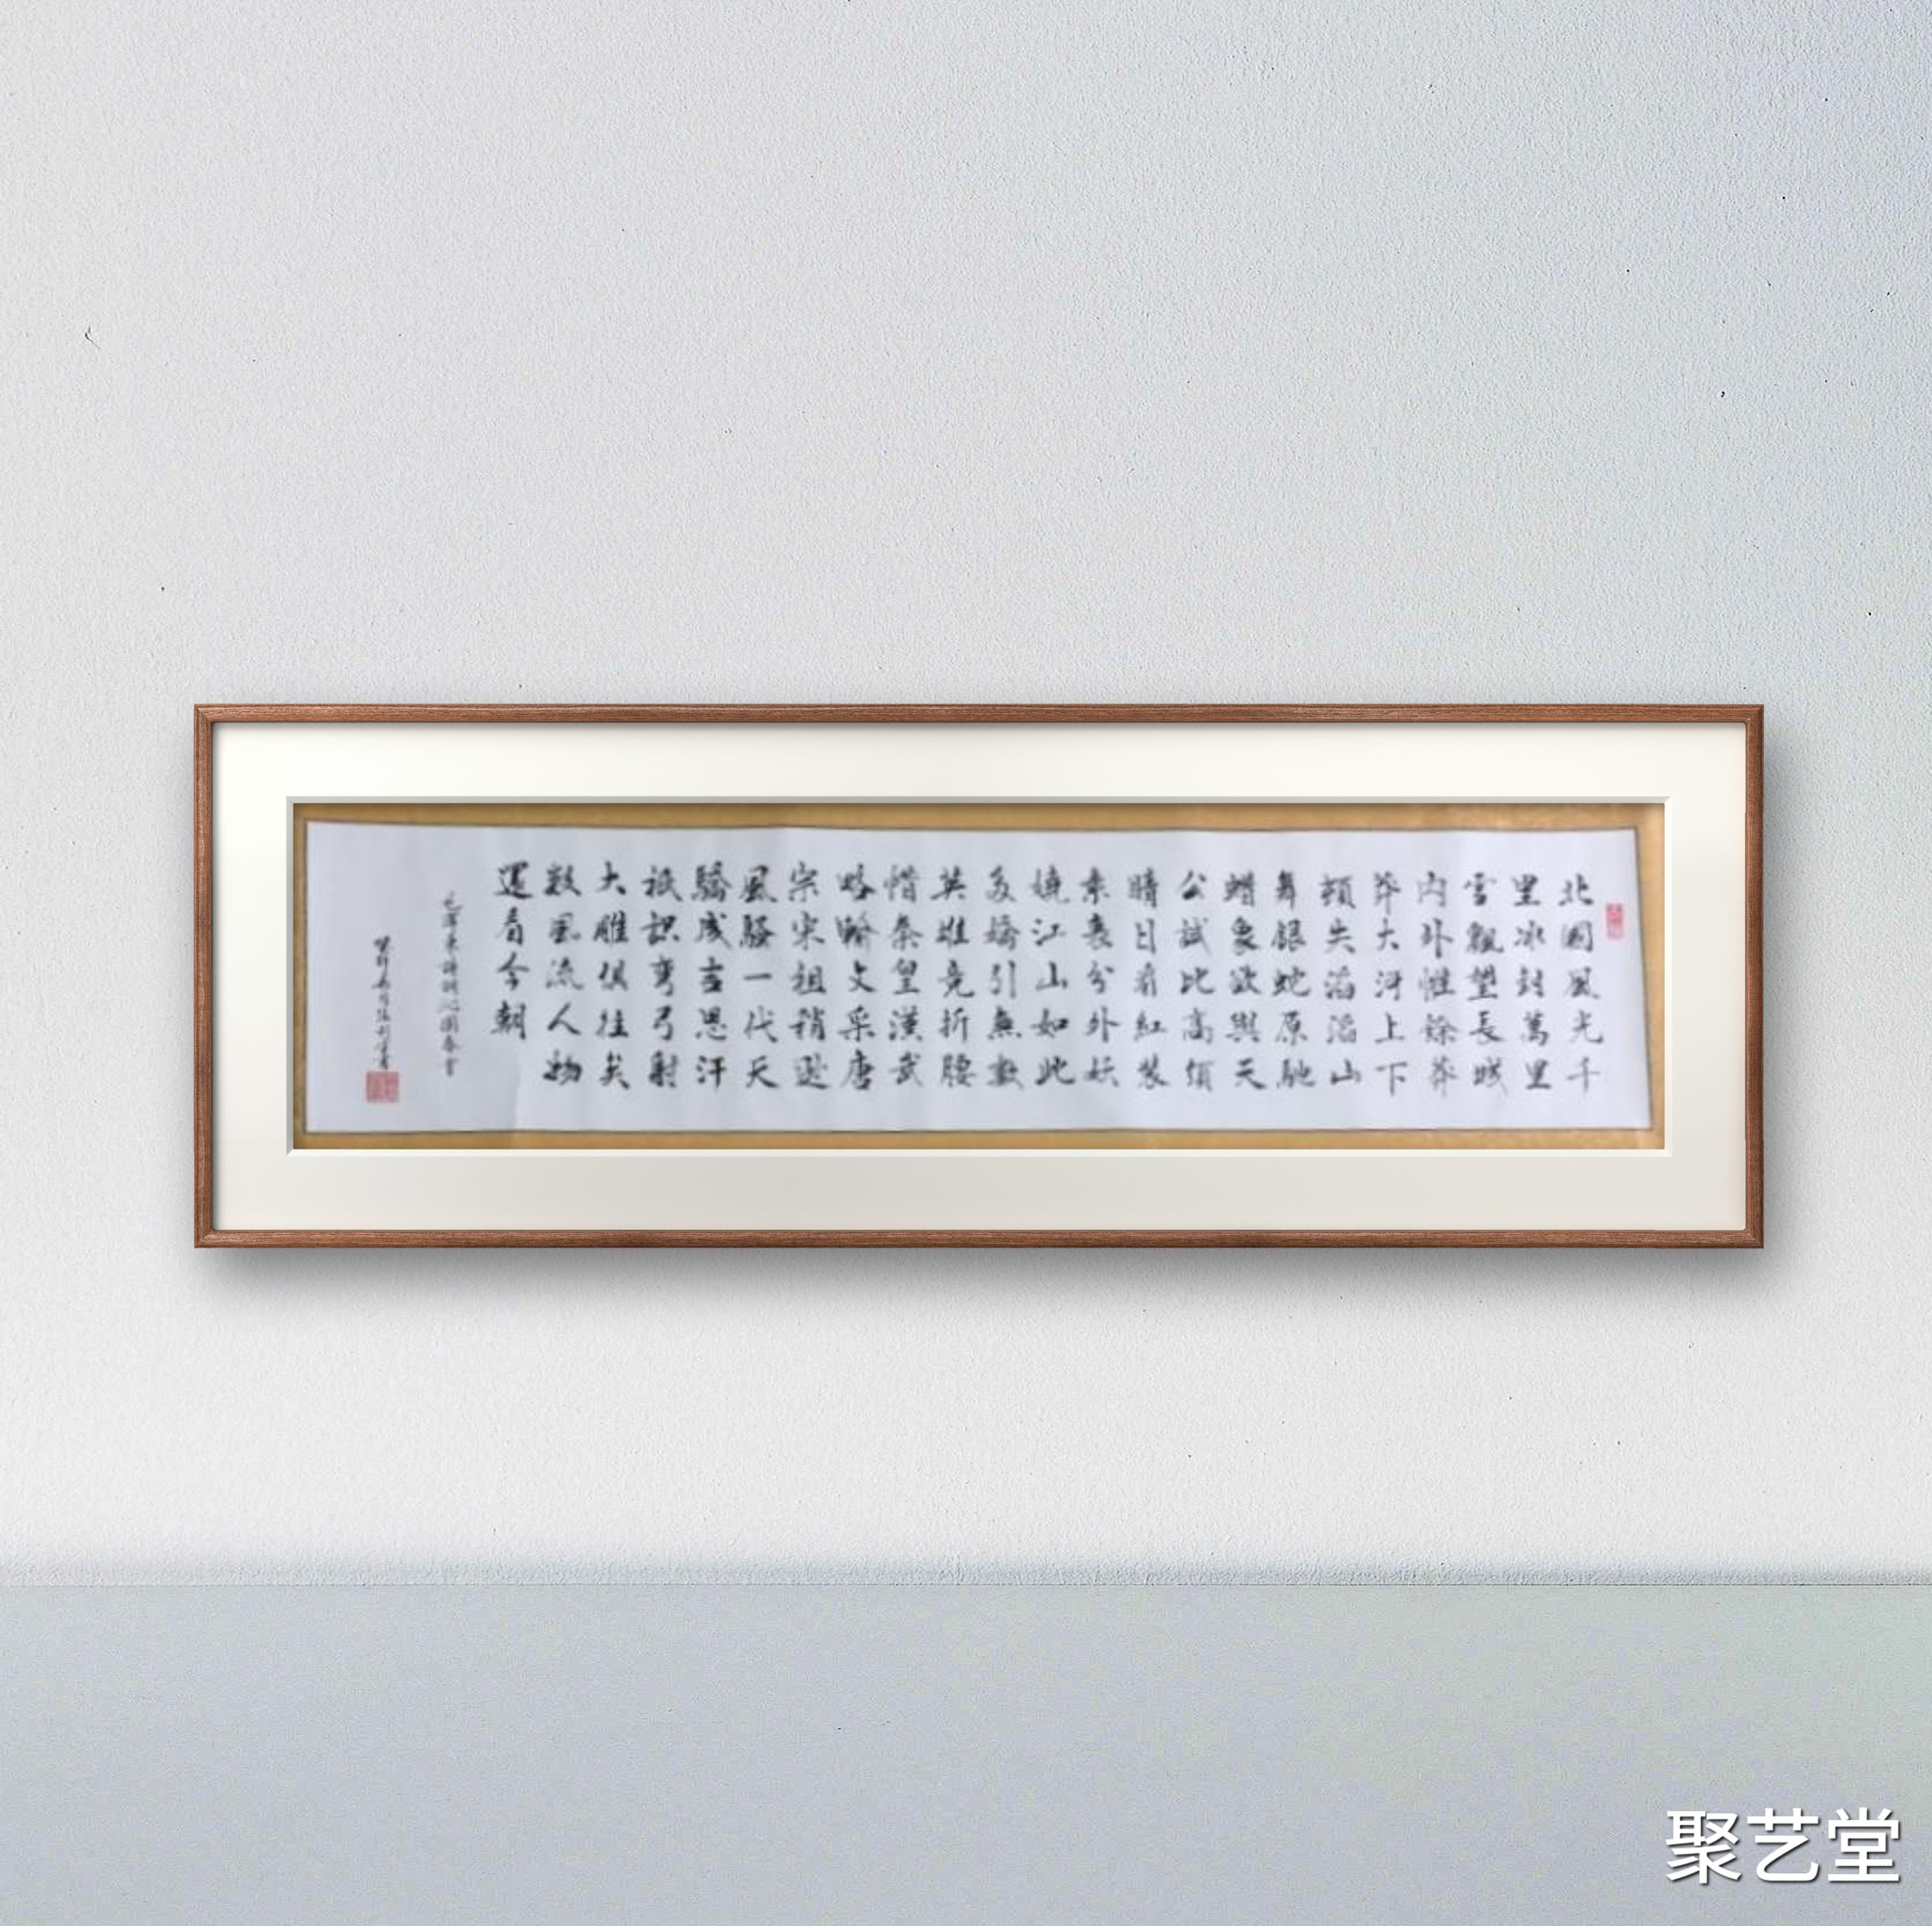 北國風光千
里冰封萬里
雪飄望長城
内外惟餘莽
莽大河上下
頓失滔滔山
舞銀蛇原馳
蜡象欲與天
公試比高須
晴日看紅裝
素裹分外妖
嬈江山如此
多嬌引無數
英雄竞折腰
惜秦皇漢武
略輸文采唐
宗宋祖稍遜
風騷一代天
驕成吉思汗
祇識彎弓射
大雕俱往矣
數風流人物
還看今朝
毛澤東詩詞沁園春雪
癸卯年
聚艺堂